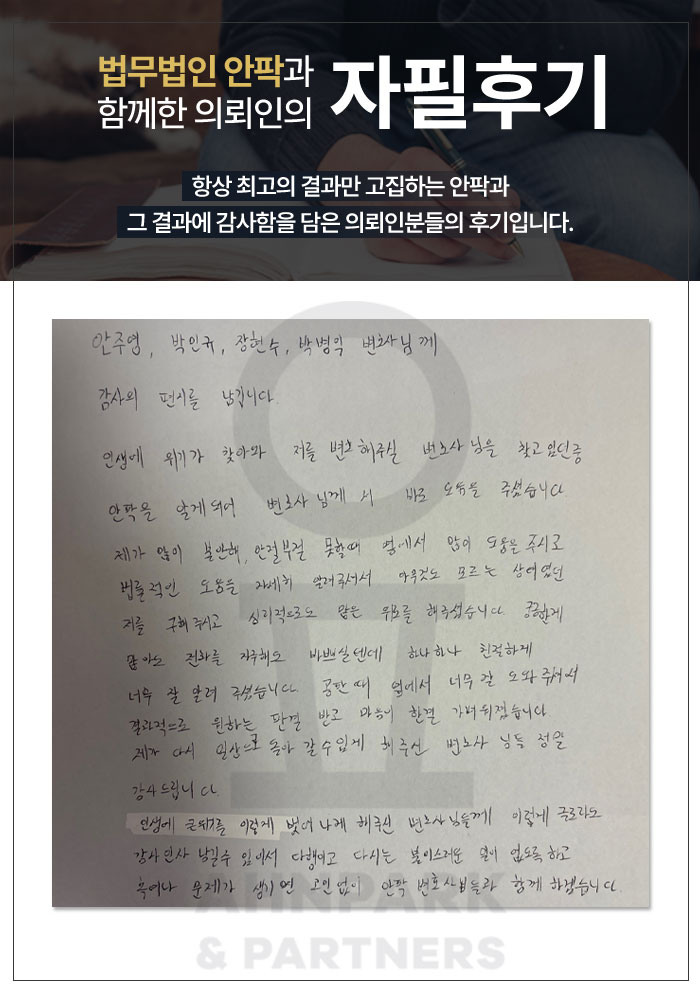 법무법인 안팍과
함께한 의뢰인의
자필후기
항상 최고의 결과만 고집하는 안팍과
그 결과에 감사함을 담은 의뢰인분들의 후기입니다.
안주영, 박민규, 장현수, 박병익 변호사님께
감사의 편지를 남깁니다.
인생에 위기가 찾아와 저를 변호해주실 변호사님을 찾고있던중
안팍을 알게되어 변호사님께서 바로 도움을 주셨습니다
제가 많이 불안해, 안절부절 못할때 옆에서 많이 도움을 주시고
법률적인 도움을 자세히 알려주셔서 아무것도 모르는 상태였던
저를 구해주시고 심리적으로도 많은 위로를 해주셨습니다. 궁금한게
많아도 전화를 자주해도 바쁘실텐데 하나하나 친절하게
너무 잘 알려 주셨습니다. 공판때 옆에서 너무 잘 도와주셔서
결과적으로 원하는 판결 받고 마음이 한결 가벼워졌습니다
제가 다시 일상으로 돌아갈수있게 해주신 변호사님들 정말
감사드립니다.
인생에 큰위기를 이렇게 벗어나게 해주신 변호사님들께 이렇게 글로라도
감사인사 남길수 있어서 다행이고 다시는 불미스러운 일이 없도록하고
혹여나 문제가 생기면 고민없이 안팍 변호사님들과 함께 하겠습니다.
AHNPARK
& PARTNERS